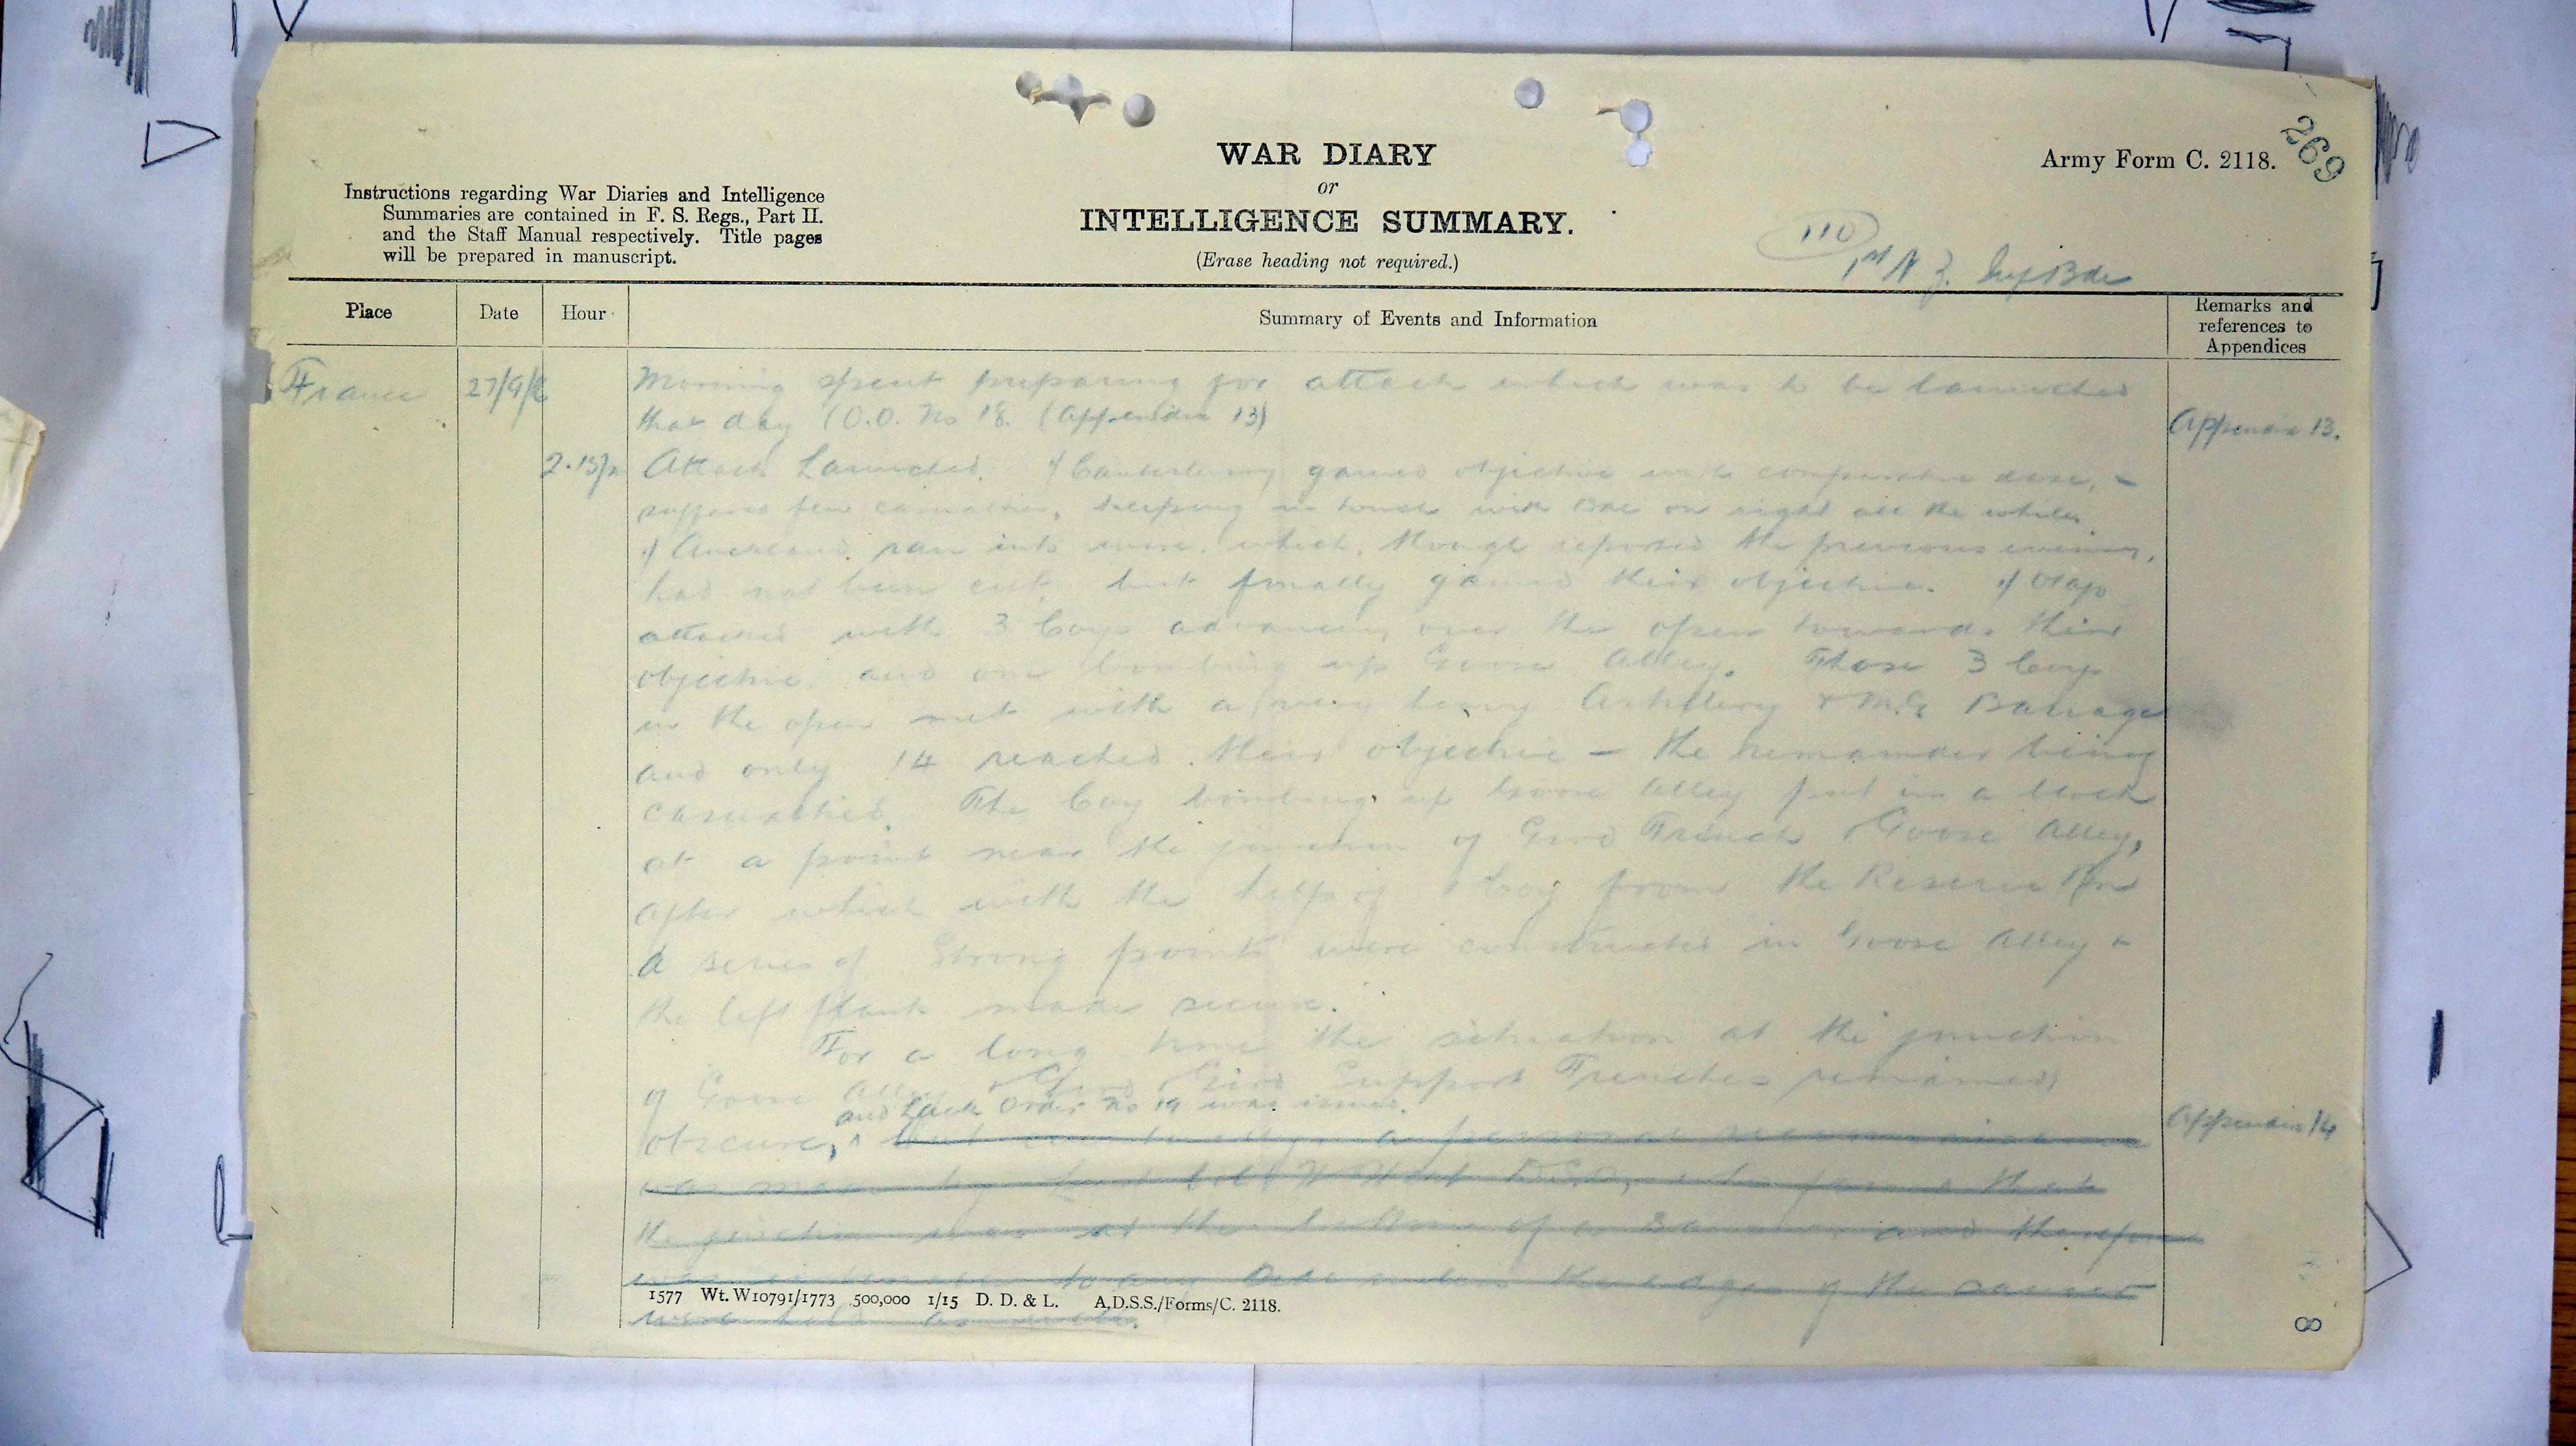 269
WAR DIARY
or
INTELLIGENCE SUMMARY.
(Erase heading not required.)
Army Form C. 2118.
Instructions regarding War Diaries and Intelligence
Summaries are contained in F. S. Regs., Part II.
and the Staff Manual respectively. Title pages
will be prepared in manuscript.
110
1st N Z. Inf Bde
Place
Date
Hour
Summary of Events and Information
Remarks and
references to
Appendices
France 27/9/16
Morning spent preparing for attack which was to be launched
that day (O.O. No 18. (Appendix 13)
Appendix 13.
2.15p Attack Launched. 1/Canterbury gained objective with comparative ease, -
suffered few casualties, keeping in touch with Bde on right all the while.
1/ Auckland ran into wire, which, though reported the previous evening,
had not been cut, but finally gained their objective. 1/ Otago
attacked with 3 Coys advancing over the open towards their
objective, and one bombing up Goose Alley. Those 3 Coys
in the open met with a very heavy Artillery & M.G Barrage
and only 14 reached their objective - the remainder being
casualties. The Coy bombing up Goose Alley put in a block
at a point near the junction of Gird Trench & Goose Alley,
after which with the help of 1 Coy from the Reserve Bn
a series of Strong points were constructed in Goose Alley &
the left flank made secure.
For a long time the situation at the junction
of Goose Alley & Gird & Gird Support Trenches remained
and Order No 19 was issued.
obscure, but eventually a personal reconnaissance
Appendix 14
was made by Lieut Col D.S.O, who found that
the junction was at the bottom of a and therefore
was to any the edges of the
were held
1577 Wt. W10791/1773 500,000 1/15 D. D. & L. A.D.S.S./Forms/C. 2118.
8